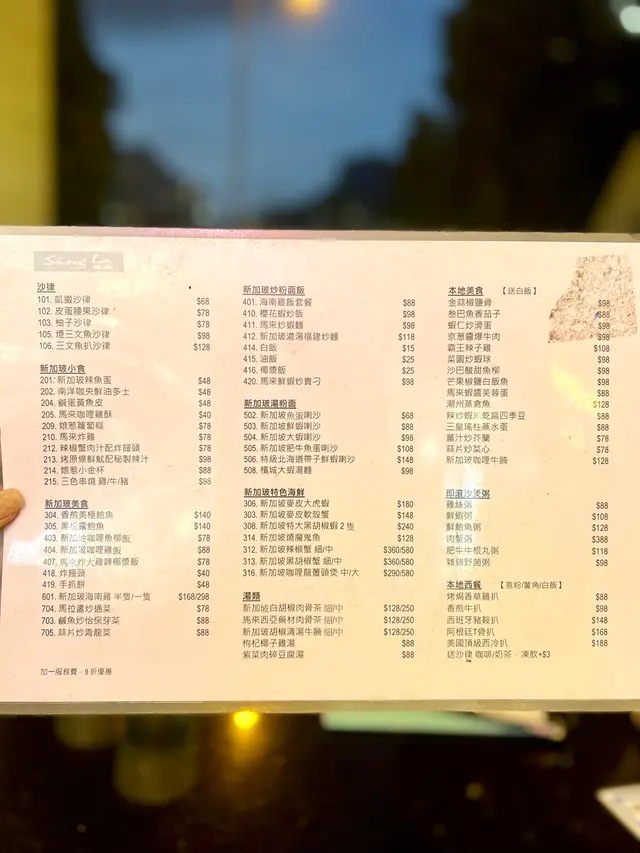 Sing La
沙律
101. 凱撒沙律 $68
102. 皮蛋腰果沙律 $78
103. 柚子沙律 $78
105. 煙三文魚沙律 $98
106. 三文魚扒沙律 $128
新加玻小食
201. 新加玻辣魚蛋 $48
202. 南洋咖央鮮油多士 $48
204. 鹹蛋黃魚皮 $48
205. 馬來咖哩雞酥 $40
209. 娘惹蘿蔔糕 $78
210. 馬來炸雞 $78
212. 辣椒蟹肉汁配炸饅頭 $78
213. 烤原條鮮魷配秘製辣汁 $98
214. 娘惹小金杯 $88
215. 三色串燒 雞/牛/豬 $98
新加玻美食
304. 香煎美極鮑魚 $140
305. 黑椒露鮑魚 $140
403. 新加玻咖哩魚柳飯 $78
404. 新加玻咖哩雞飯 $88
407. 馬來炸大雞髀椰漿飯 $78
418. 炸饅頭 $40
419. 手抓餅 $48
601. 新加玻海南雞 半隻/一隻 $168/298
704. 馬拉盞炒通菜 $78
703. 鹹魚炒怡保芽菜 $88
705. 蒜片炒青龍菜 $88
加一服務費﹐9 折優惠
新加玻炒粉面飯
401. 海南雞飯套餐 $88
410. 櫻花蝦炒飯 $98
411. 馬來炒蝦麵 $98
412. 新加玻濃湯福建炒麵 $118
414. 白飯 $15
415. 油飯 $25
416. 椰漿飯 $25
420. 馬來鮮蝦炒貴刁 $98
新加玻湯粉面
502. 新加玻魚蛋喇沙 $68
503. 新加玻鮮蝦喇沙 $88
504. 新加玻大蝦喇沙 $98
505. 新加玻肥牛魚蛋喇沙 $108
506. 特級北海道帶子鮮蝦喇沙 $148
508. 檳城大蝦湯麵 $98
新加玻特色海鮮
306. 新加玻麥皮大虎蝦 $180
303. 新加玻麥皮軟殼蟹 $148
308. 新加玻特大黑胡椒蝦 2 隻 $240
314. 新加玻燒魔鬼魚 $128
312. 新加玻辣椒蟹 細/中 $360/580
313. 新加玻黑胡椒蟹 細/中 $360/580
316. 新加玻咖哩龍躉頭煲 中/大 $290/580
湯類
新加玻白胡椒肉骨茶 細/中 $128/250
馬來西亞藥材肉骨茶 細/中 $128/250
新加玻胡椒清湯牛腩 細/中 $128/250
枸杞椰子雞湯 $88
紫菜肉碎豆腐湯 $88
本地美食 【送白飯】
金蒜椒鹽骨 $98
叁巴魚香茄子 $88
蝦仁炒滑蛋 $98
京葱醬爆牛肉 $98
霸王辣子雞 $108
菜園炒蝦球 $98
沙巴酸甜魚柳 $98
芒果椒鹽白飯魚 $98
馬來蝦醬芙蓉蛋 $88
潮州蒸倉魚 $128
辣炒蝦米乾扁四季豆 $88
三皇瑤柱蒸水蛋 $88
薑汁炒芥蘭 $78
蒜片炒菜心 $78
新加玻咖哩牛腩 $128
即滾沙煲粥
雞絲粥 $88
鮮蝦粥 $108
鮮鮑魚粥 $128
肉蟹粥 $388
肥牛牛根丸粥 $118
雜錦野菌粥 $98
本地西餐 【意粉/薯角/白飯】
烤焗香草雞扒 $88
香煎牛扒 $98
西班牙豬鞍扒 $148
阿根廷T骨扒 $168
美國頂級西冷扒 $188
送沙律 咖啡/奶茶﹐凍飲+$3